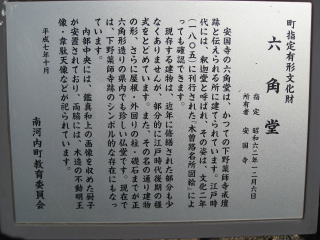 町指定有形文化財
六角堂
指定 昭和六二年一二月六日
所有者 安国寺
安国寺の六角堂は、かつての下野薬師寺戒壇
跡と伝えられる所に建てられています。江戸時
代には、釈迦堂と呼ばれ、その姿は、文化二年
(一八〇五)に刊行された「木曽路名所図絵」によ
っても確認できます。
現存する建物は、近年に修繕された部分も少
なくありませんが、部分的に江戸時代後期の様
式をとどめています。また、その名の通り建物
の形、さらに屋根・外回りの柱・礎石までが正
六角形造りの県内でも珍しい仏堂です。現在で
は、下野薬師寺跡のシンボル的な存在にもなっ
ています。
内部中央には、鑑真和上の画像を収めた厨子
が安置されており、両脇には、木造の不動明王
像・韋駄天像などが祀られています。
平成七年十月
南河内町教育委員会